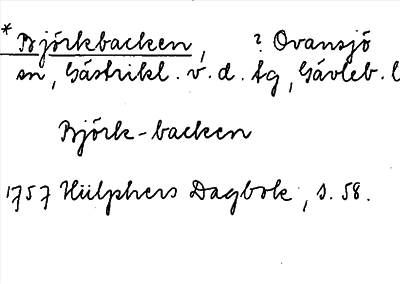 * Björkbacken, ? Ovansjö
sn, Gästrikl. v. d. tg, Gävleb. l
Björk-backen
1757 Hülphers Dagbok, s. 58.